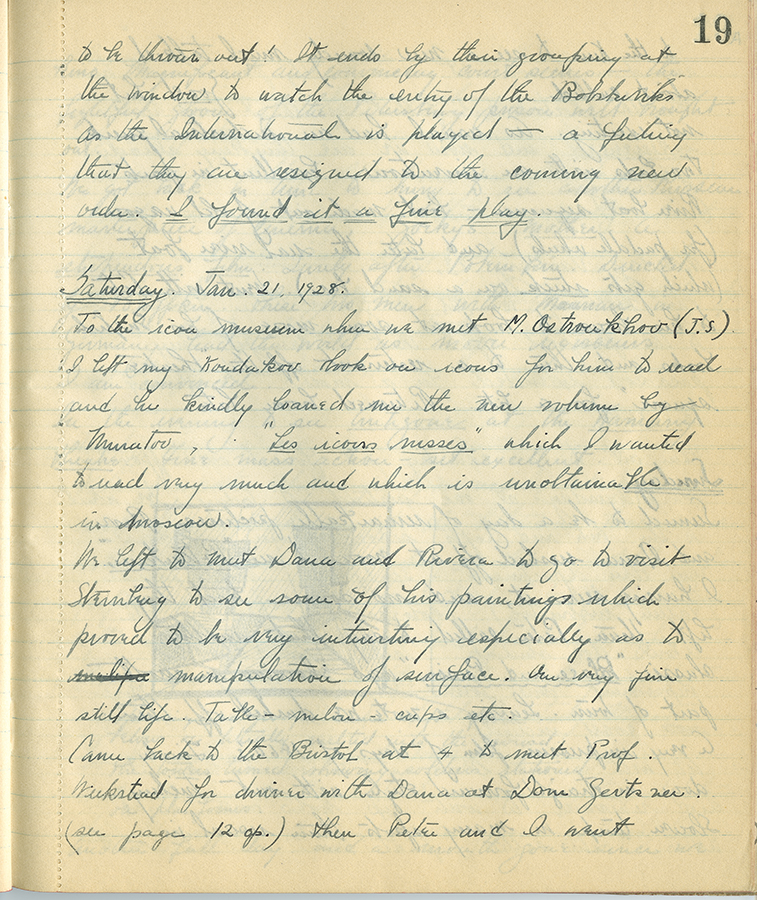 19
to be thrown out! It ends by their grouping at
the window to watch the entry of the Bolsheviks
as the International is played — a feeling
that they are resigned to the coming new
order. I found it a fine play.
Saturday. Jan. 21, 1928.
To the icon museum when we met M. Ostroukhov (J.S)
I left my Kondakov book on icons for him to read
and he kindly loaned me the new volume by
Muratov, "Les icons russes" which I wanted
to read very much and which is unobtainable
in Moscow.
We left to meet Dana and Rivera to go to visit
Sternberg to see some of his paintings which
proved to be very interesting especially as to
manipulation of surface. One very fine
still life. Table - melon - cups etc.
Came back to the Bristol at 4 to meet Prof.
Wickstead for dinner with Dana at Dom Gertsner.
(see page 12 op.) Then Petre and I went